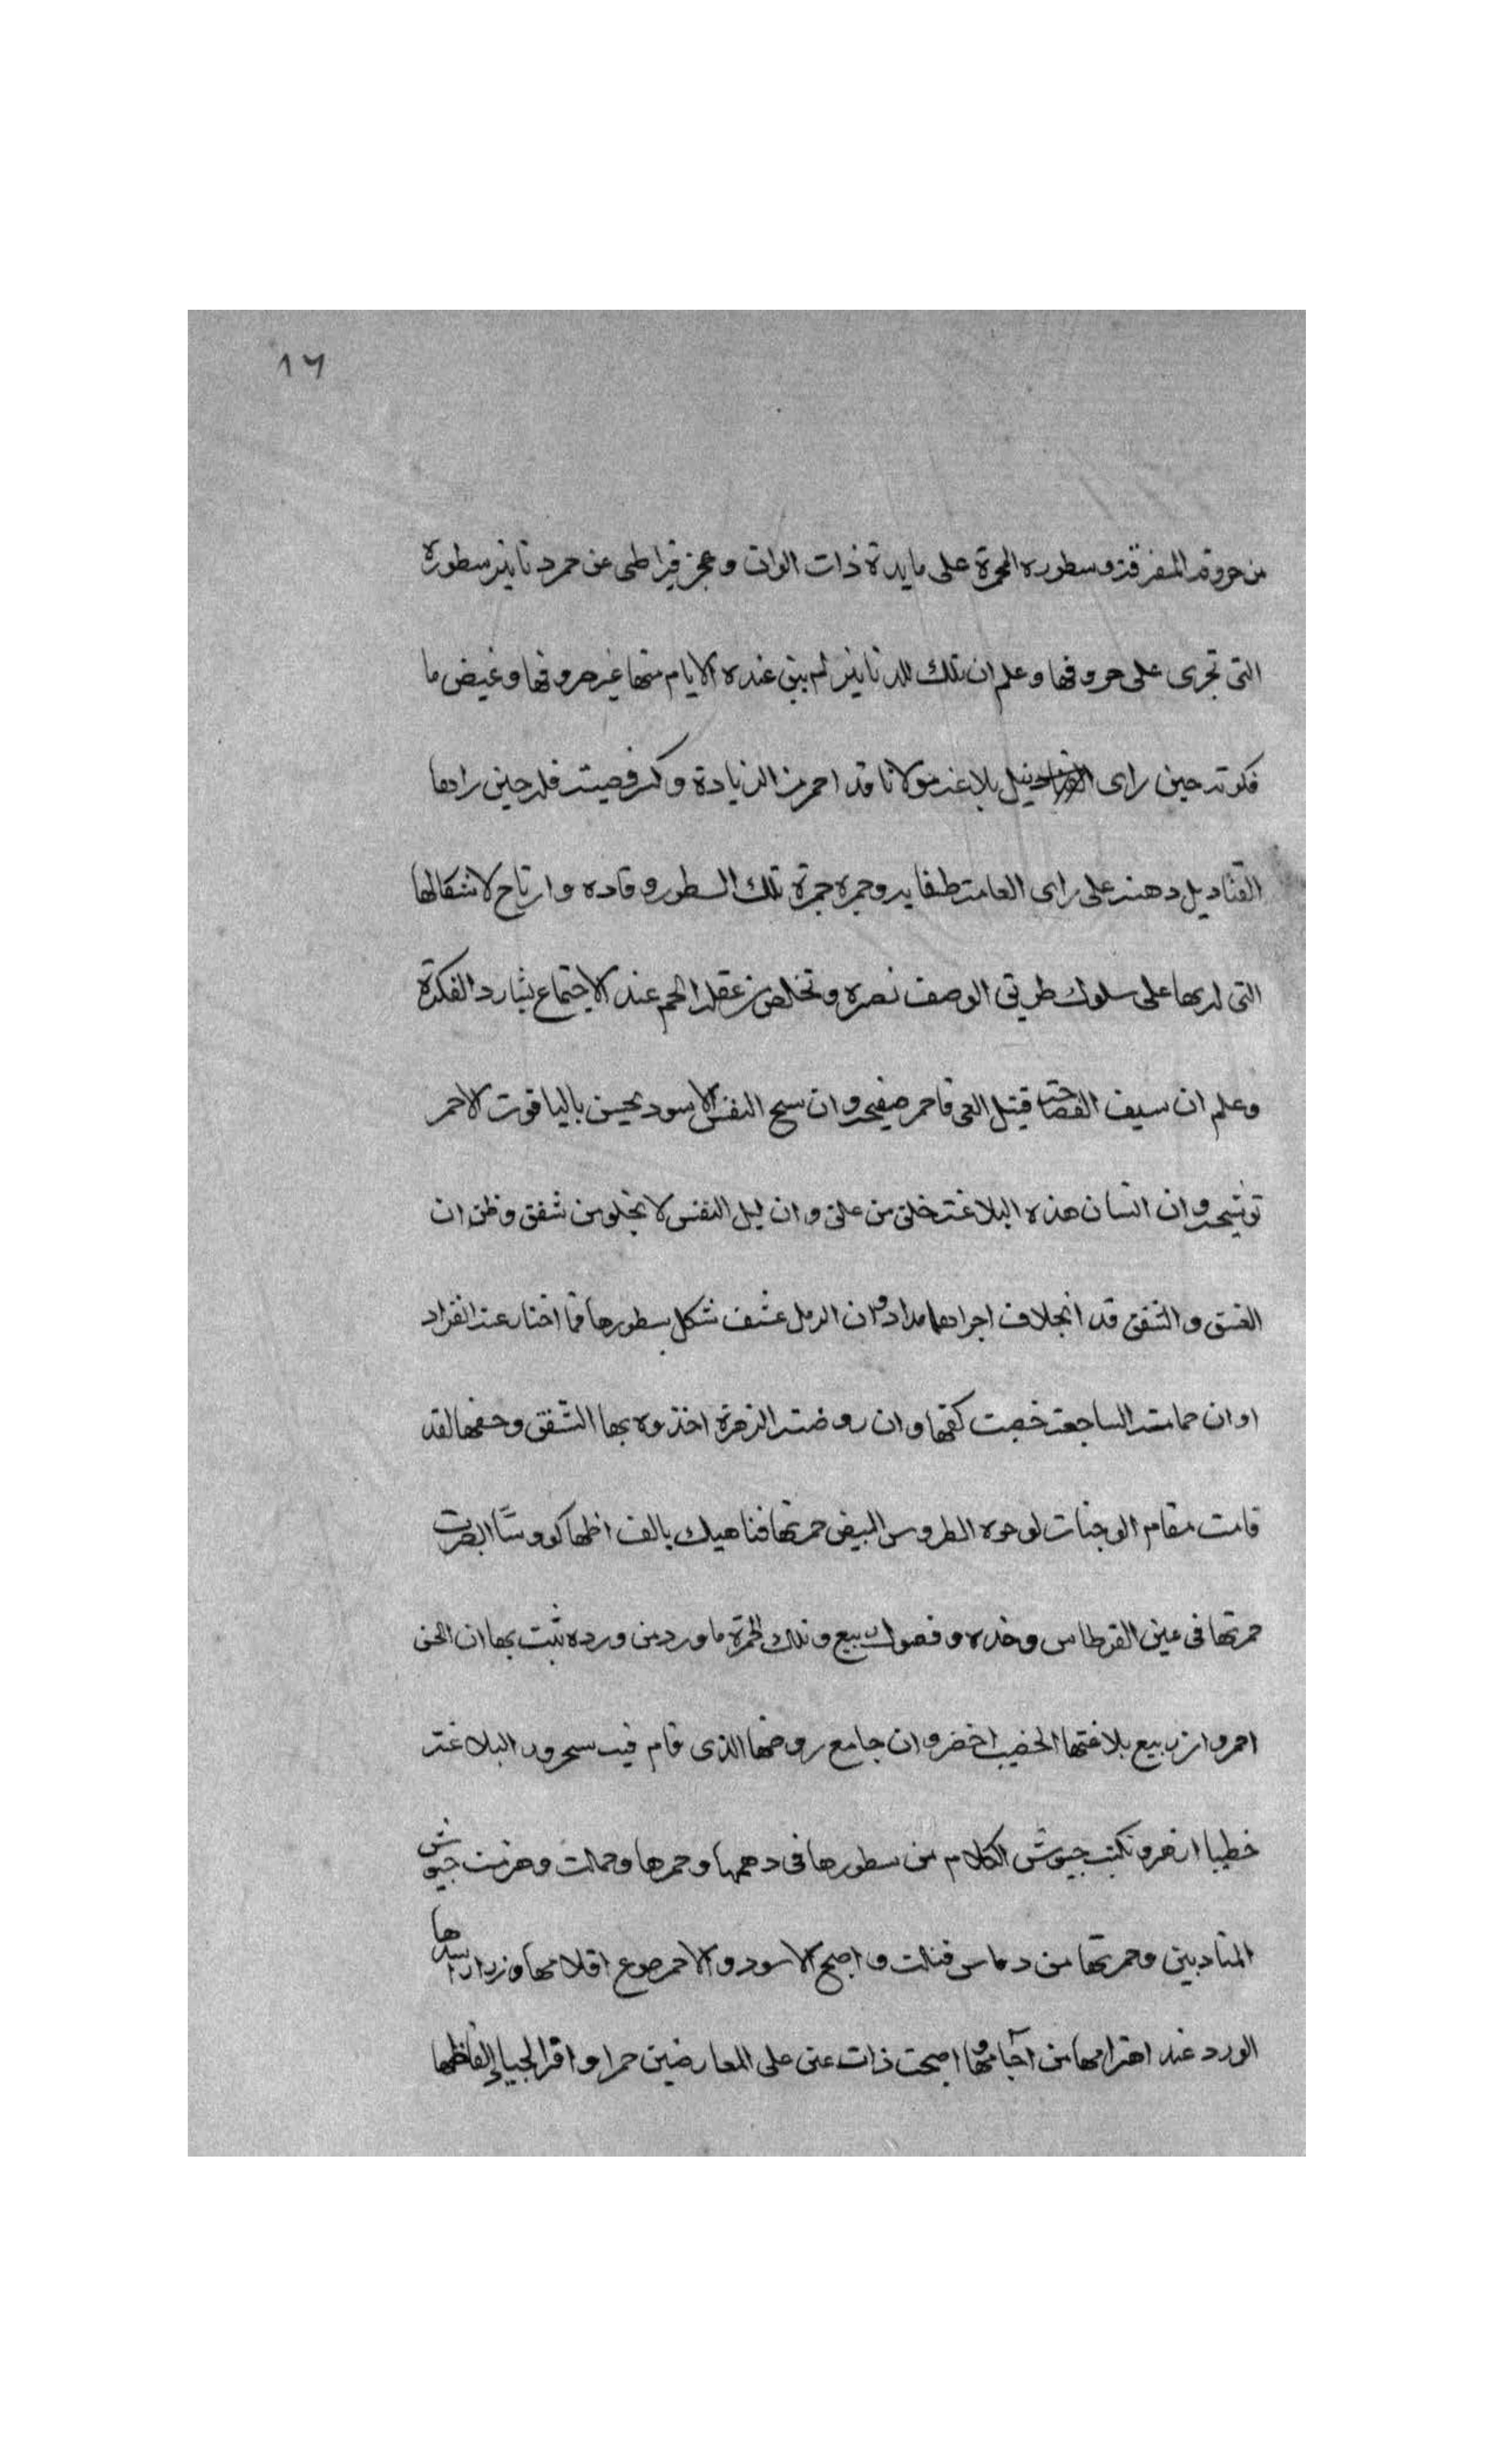 ١٦
من حروفه المفرقة وسطوره المحمرة على مايدة ذات الوان وعجز قيراطى عن حمر دنانير سطوره
التى تجرى على حروفها وعلم ان تلك الدنانير لم يبق عنده الايام منها غير حروفها وغيض ما
فكرته حين راى نيل بلاغة مولانا قد احمر من الزيادة وكم فصيت فله حين راها
القناديل دهنه على راى العامة طفا يد وحمره جمرة تلك السطور وقاده وارتاح لاشكالها
التى لديها على سلوك طريق الوصف نصره وتخلص من عقله الحم عند الاجتماع بشارد الفكرة
وعلم ان سيف الفصاحة قتيل العى فاحمر صفيحه وان سبح النفس الاسود يحسن بالياقوت الاحمر
توشيحه وان انسان هذه البلاغة خلق من علق وان ليل النفس لا يخلو من شفق وظن ان
الغسق والشفق قد انجلا فى اجرادها مداد وان الرمل عشق شكل سطورها فما اختار عند انفراد
او ان حمامته الساجعة خضبت كفها وان روضته الزهرة اخذوه بها الشقق وحفها لقد
قامت مقام الوجنات لوجوه الطروس البيض حمرتها فناهيك بالف اظها كووسًا ابصرت
حمرتها فى عين القرطاس وخده وفصول ربيع وتلك الحمرة ما ورد من ورده يثبت بها ان الحسن
احمر وان ربيع بلاغتها الخصيب اخضر وان جامع روضها الذى قام فيه سحرور البلاغة
خطيبا ازهر ونكتب جيوش الكلام من سطورها فى دهمها وحمرها وحمالت وهزمت جيوش
المتادبين وحمرتها من دماس قتلت واصبح الاسود والاحمر طوع اقلامها وزار اسدها
الورد عند اهتزامها من آجامها واصبحت ذات عين على المعارضين حمرا واقرا لجيبا الفاظها